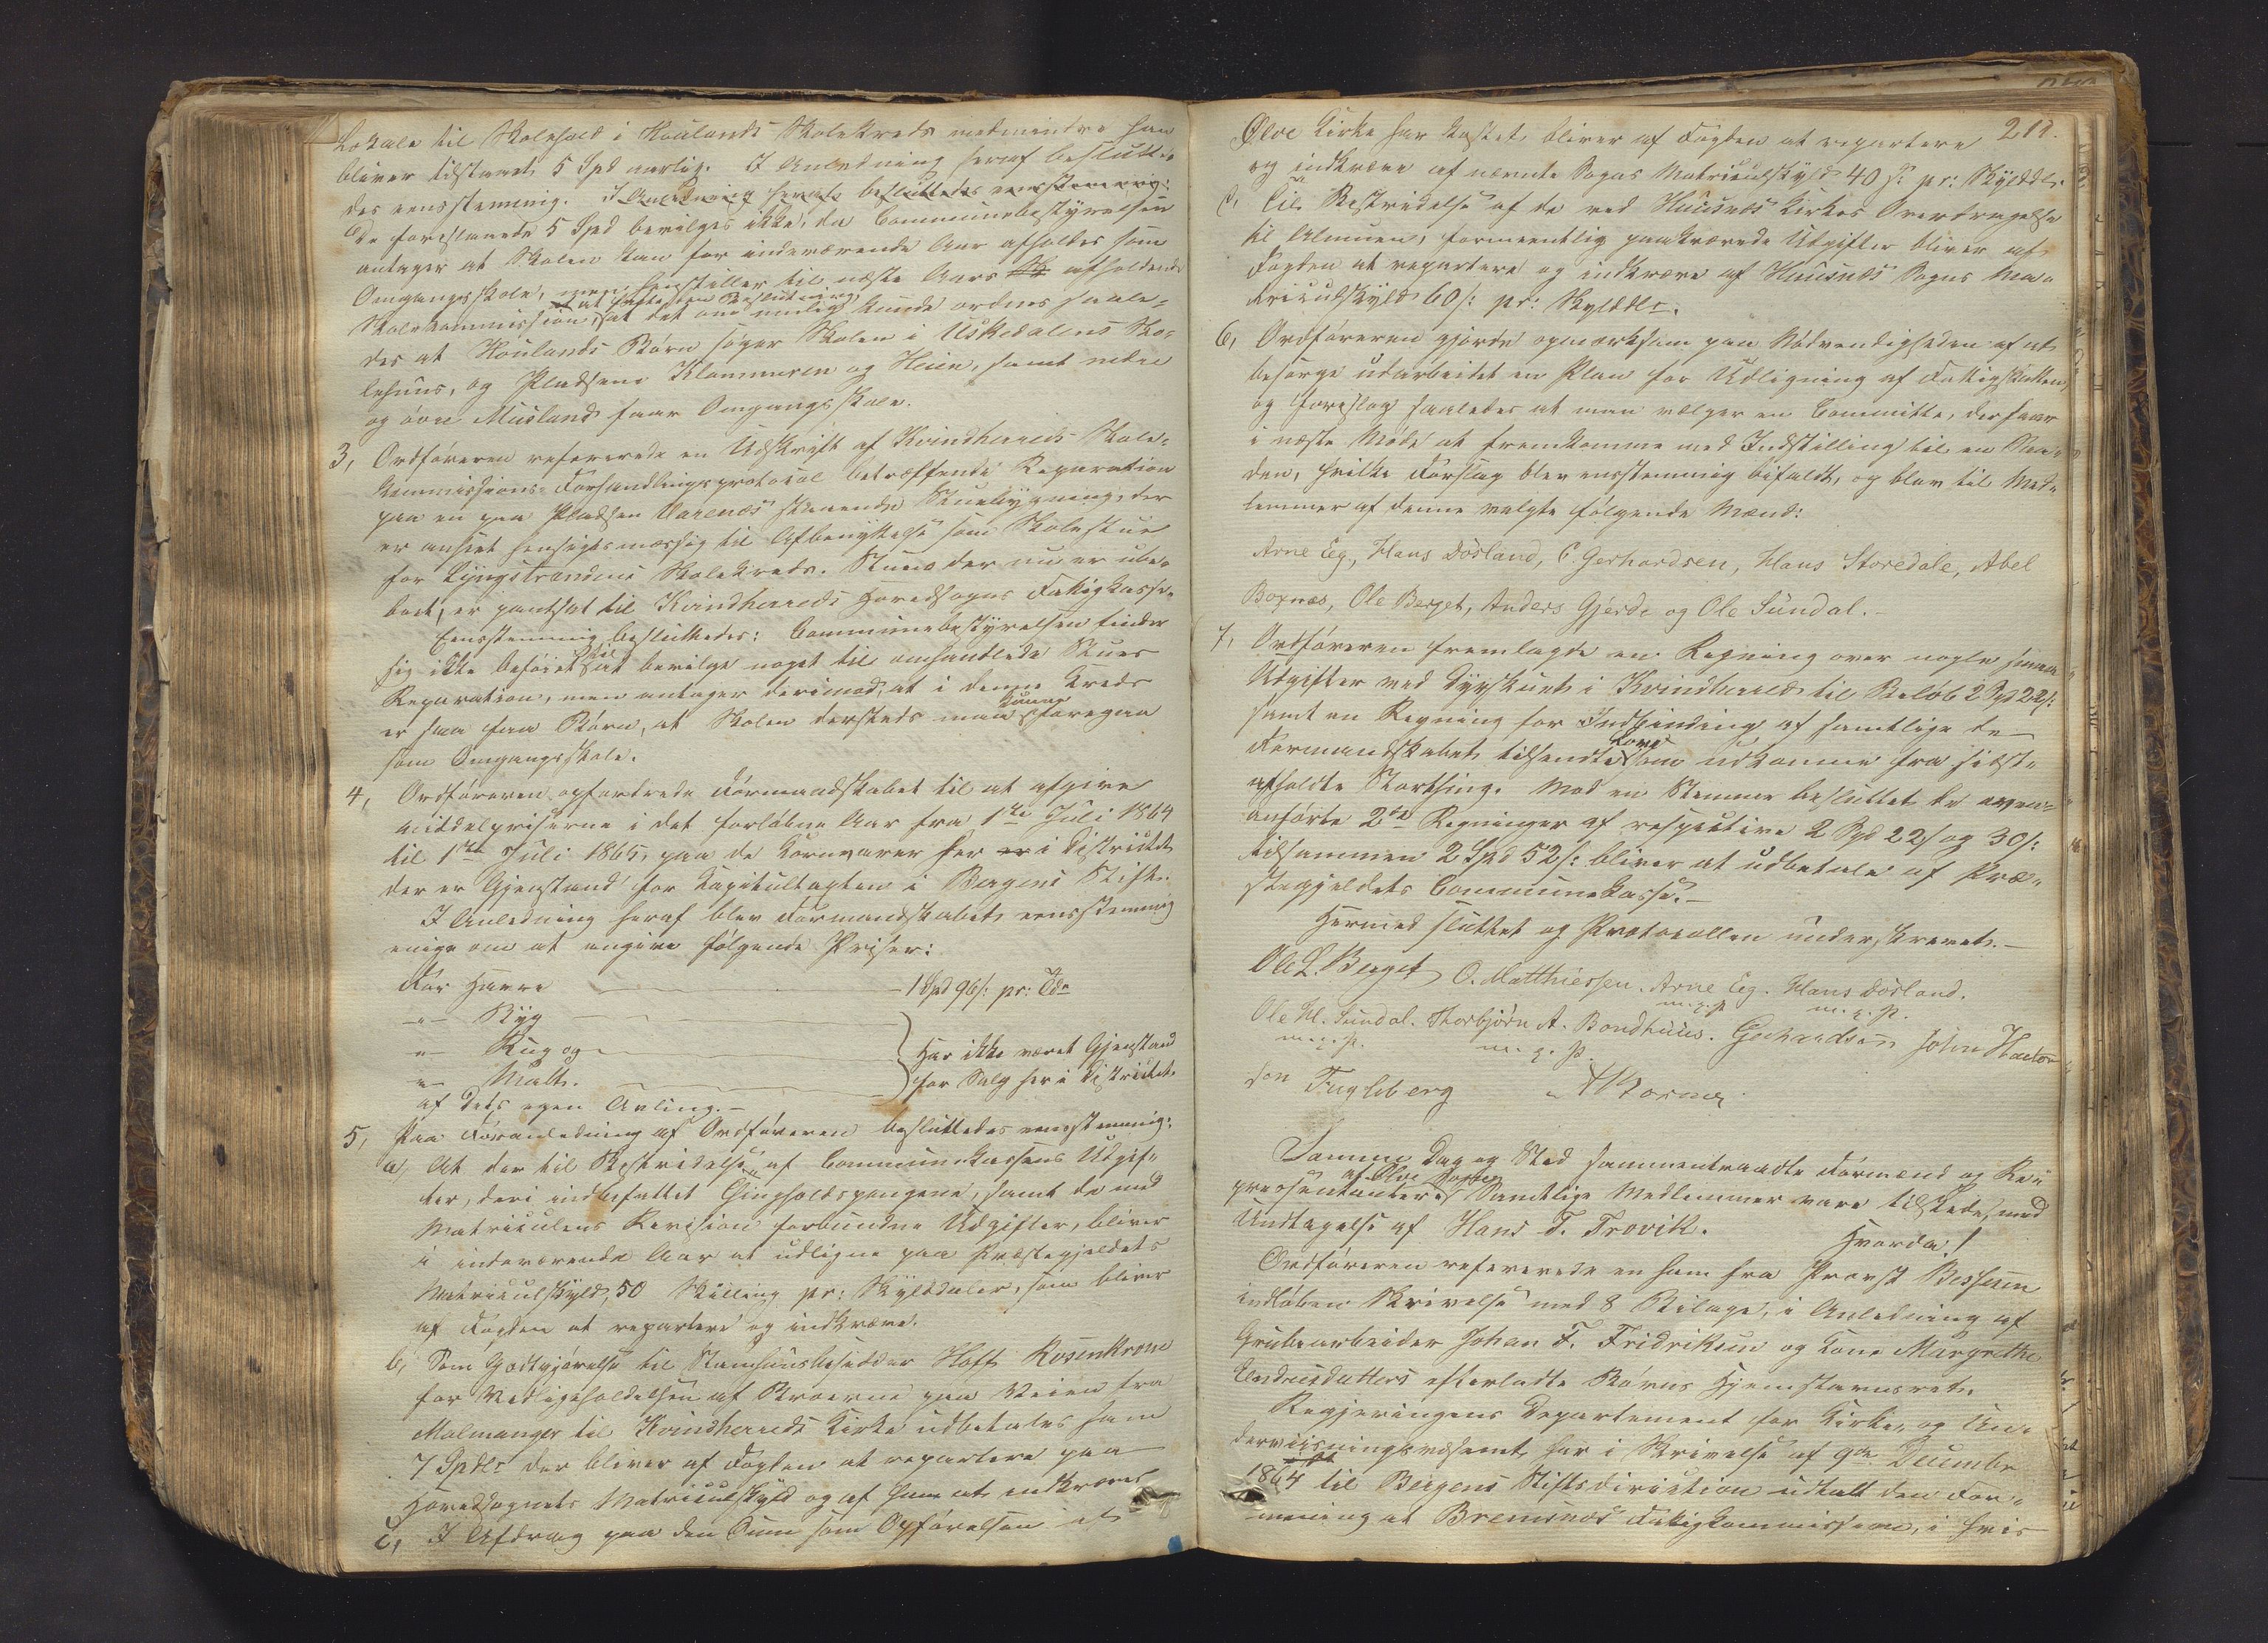 Lokale til Skolehold i Houlands Skolekreds medmindre han
bliver tilstaaet 5 Spd aarlig. I Anledning heraf beslutte-
des eensstemmig. I Anledning heraf besluttedes eensstemmig:
De foreslaaede 5 Spd bevilges ikke, da Communebestyrelsen
antager at Skolen kan for indeværende Aar afholdes som
Omgangsskole, men henstiller til næste Aars afholdende
Skolekommission, at fatte den Beslutning, at det om mulig kunde ordnes saale-
des at Houlands Børn søger Skolen i Uskedalens Sko-
lehuus, og Pladsene Klammeren og Heien, samt nedre
og øvre Musland faar Omgangsskole.
3, Ordføreren refererede en Udskrift af Kvindherreds Skole-
kommissions Forhandlingsprotocol betræffende Reparation
paa en paa Pladsen Varenæs staaende Stuebygning, der
er anseet hensigtsmæssig til Afbenyttelse som Skolestue
for Lyngstrandens Skolekreds. Stuen der nu er ube-
boet, er pantsat til Kvindherreds Hovedsogns Fattigkasse.
Eensstemmig besluttedes: Communebestyrelsen finder
sig ikke beføiet til at bevilge noget til omhandlede Stues
Reparation, men antager derimod, at i denne Kreds
er saa faa Børn, at Skolen dersteds maa kunne foregaa
som Omgangsskole.
4, Ordføreren opfordrede Formandskabet til at afgive
Middelpriserne i det forløbne Aar fra 1ste Juli 1864
til 1ste Juli 1865, paa de Kornvarer her er i Districtet
der er Gjenstand for Kapitultaxten i Bergens Stift.
I Anledning heraf blev Formandskabet eensstemmig
enige om at angive følgende Priser:
For Havre 1 Spd 96 s: pr: Tde
-"- Byg
-"- Rug og Har ikke været Gjenstand
-"- Malt. for Salg her i Districtet
af dets egen Avling.-
5, Paa Foranledning af Ordføreren besluttedes eensstemmig:
a, At der til Bestridelse af Communekassens Udgif-
ter, deri indbefattet Thingholdspengene, samt de med
Matriculens Revision forbundne Udgifter, bliver
i indeværende Aar at udligne paa Præstegjeldets
Matriculskyld, 50 Skilling pr: Skylddaler, som bliver
af Fogden at repartere og indkræve.
b, Som Godtgjørelse til Stamhuusbesidder Hoff Rosenkrone
for Vedligeholdelsen af Broerne paa Veien fra
Malmanger til Kvindherreds Kirke udbetales ham
7 Spdlr der bliver af Fogden at repartere paa
Hovedsognets Matriculskyld og af ham at indkræves
c, I Afdrag paa den Sum som Opførelsen af
Ølve Kirke har kostet, bliver af Fogden at repartere 211.
og indkræve af nævnte Sogns Matriculskyld 40 s: pr: Skylddlr.
d, Til Bestridelse af de ved Huusnæs Kirkes Overdragelse
til Almuen, formeentlig paakrævede Udgifter bliver af
Fogden at repartere og indkræve af Huusnæs Sogns Ma-
triculskyld 60 s: pr: Skylddlr.
6, Ordføreren gjorde opmærksom paa Nødvendigheden af at
besørge udarbeidet en Plan for Udligning af Fattigskatten,
og foreslog saaledes at man vælger en Committe, der faar
i næste Møde at fremkomme med Indstilling til en Saa-
dan, hvilke Forslag blev eensstemmig bifaldt, og blev til Med-
lemmer af denne valgte følgende Mænd:
Arne Eeg, Hans Døsland, C. Gerhardsen, Hans Storedale, Abel
Boxnæs, Ole Berget, Anders Gjerde og Ole Sundal.-
7, Ordføreren fremlagde en Regning over nogle smaa
Udgifter ved Dyrskuet i Kvindherred til Beløb 2 Spd 22 s:
samt en Regning for Indbinding af samtlige de
Formandskabet tilsendte Love som udkomne fra sidst-
afholdte Storthing. Mod en Stemme besluttet de oven-
anførte 2de Regninger af respective 2 Spd 22 s og 30 s:
tilsammen 2 Spd 52 s: bliver at udbetale af Præ-
stegjeldets Communekasse.-
Hermed sluttet og Protocollen underskrevet.-
Ole L. Berget O. Matthiessen. Arne Eeg. Hans Døsland.
m.g.P. m.g.P.
Ole H. Sundal. Thorbjørn A. Bondhuus. Gerhardsen John Haaton
m.g.P. m.g.P.
son Fugleberg
Samme Dag og Sted sammentraadte Formænd og Re-
præsentantere af Ølve Sogn. Samtlige Medlemmer vare tilstede, med
Undtagelse af Hans T. Trovik.
Hvorda!
Ordføreren refererede en ham fra Provst Bessesen
indløben Skrivelse med 8 Bilage, i Anledning af
Grubearbeider Johan F. Fridriksen og Kone Margrethe
Endresdatters efterladte Børns Hjemstavnsret.
Regjeringens Departement for Kirke- og Un-
dervisningsvæsenet har i Skrivelse af 9de December
1864 til Bergens Stiftsdirection udtalt den For-
mening at Bremsnæs Fattigkommission, i hvis